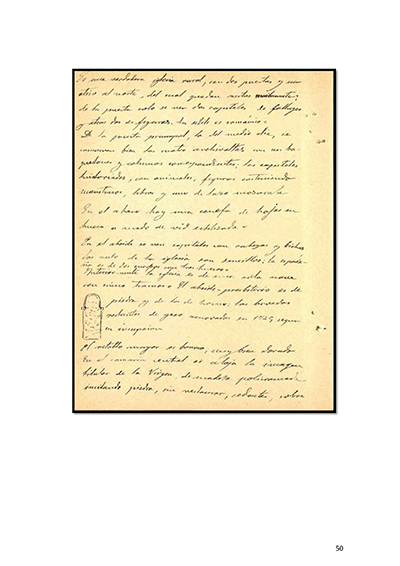 Es una verdadera iglesia rural, con dos puertas y una
al norte, del cual quedan restos
de la puerta solo se ven dos capiteles de follages
y otros dos de figuras, su estilo es románico.
De la puerta principal, la del medio día, se
conservan bien las cuatro archivoltas con sus ba
quetones y columnas correspondientes; los capiteles
historiados, con animales, figuras conteniendo
monstruos, lobos y uno de lazo
En el abaco hay una cenefa de hojas en
hueco a modo de vid estilizada.
En el abside se ven capiteles con
los de la iglesia son sencillos; la espada
ña es de dos cuerpos con tres huecos.
Interiormente la iglesia es de una sola nave
con cinco tramos. El abside, presbiterio es de
piedra y de la de horno, las bovedas
restantes de yeso renovadas en 1725, segun
inscripcion
El retablo mayor es bueno, muy bien dorado
En el camarin central se aloja la imagen
titular de la Virgen, de madera policromada
imitando piedra, sin restaurar, sedente, sobre
50